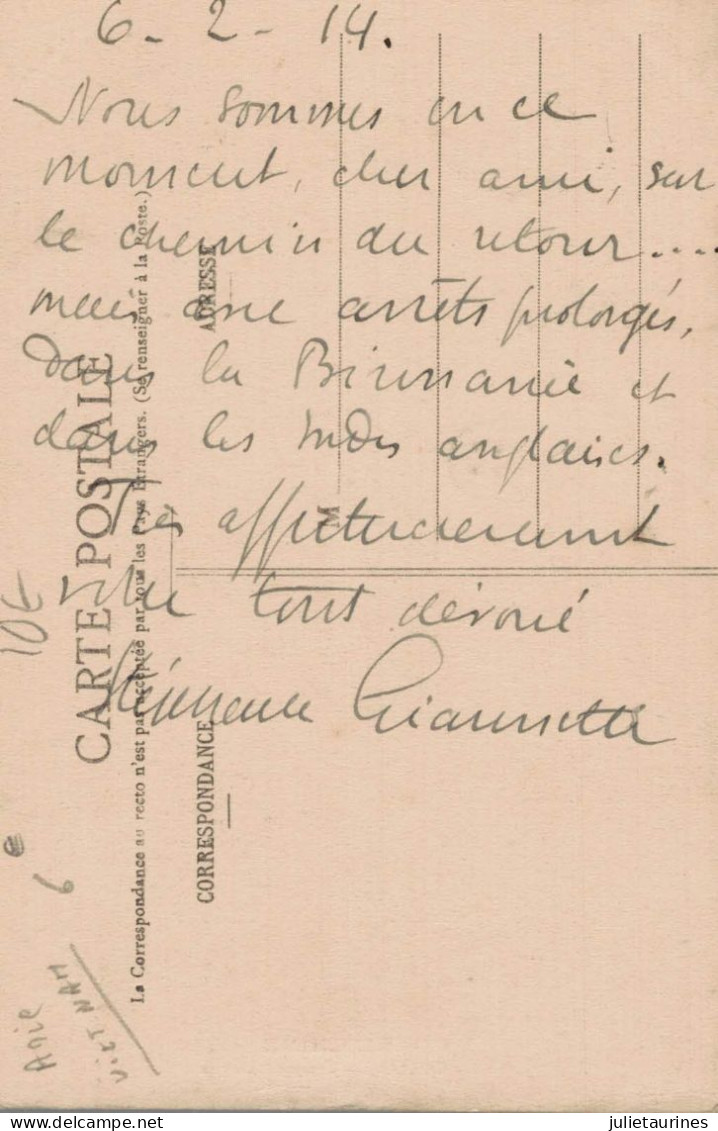 6 - 2 - 14.
Nous sommes en ce
moment, cher ami, sur
le chemin du retour....
mais avec arrêts prolongés,
dans la Birmanie et
dans les Indes anglaises.
Très affectueusement
votre tout dévoué
CARTE POSTALE
La Correspondance au recto n'est pas acceptée par tous les Pays Etrangers. (Se renseigner à la Poste.)
CORRESPONDANCE
ADRESSE
M
10€
€
6
Asie
VIET NAM
delcampe.net
julietaurines